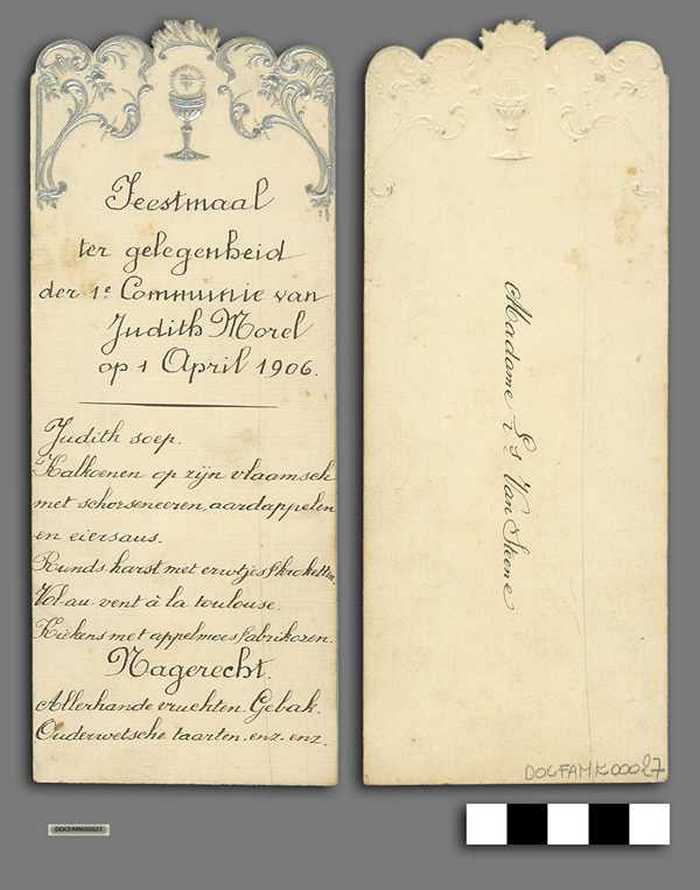 Feestmaal
ter gelegenheid
der 1e Communie van
Judith Morel
op 1 April 1906.
Judith soep.
Kalkoenen op zijn vlaamsch
met schorseneeren, aardappelen
en eiersaus.
Runds harst met erwtjes & kroketten
Vol au vent à la toulouse.
Kiekens met appelmoes & abrikozen.
Nagerecht.
Allerhande vruchten. Gebak.
Ouderwetsche taarten. enz. enz.
Madame Van Steene
DOCFAMK00027